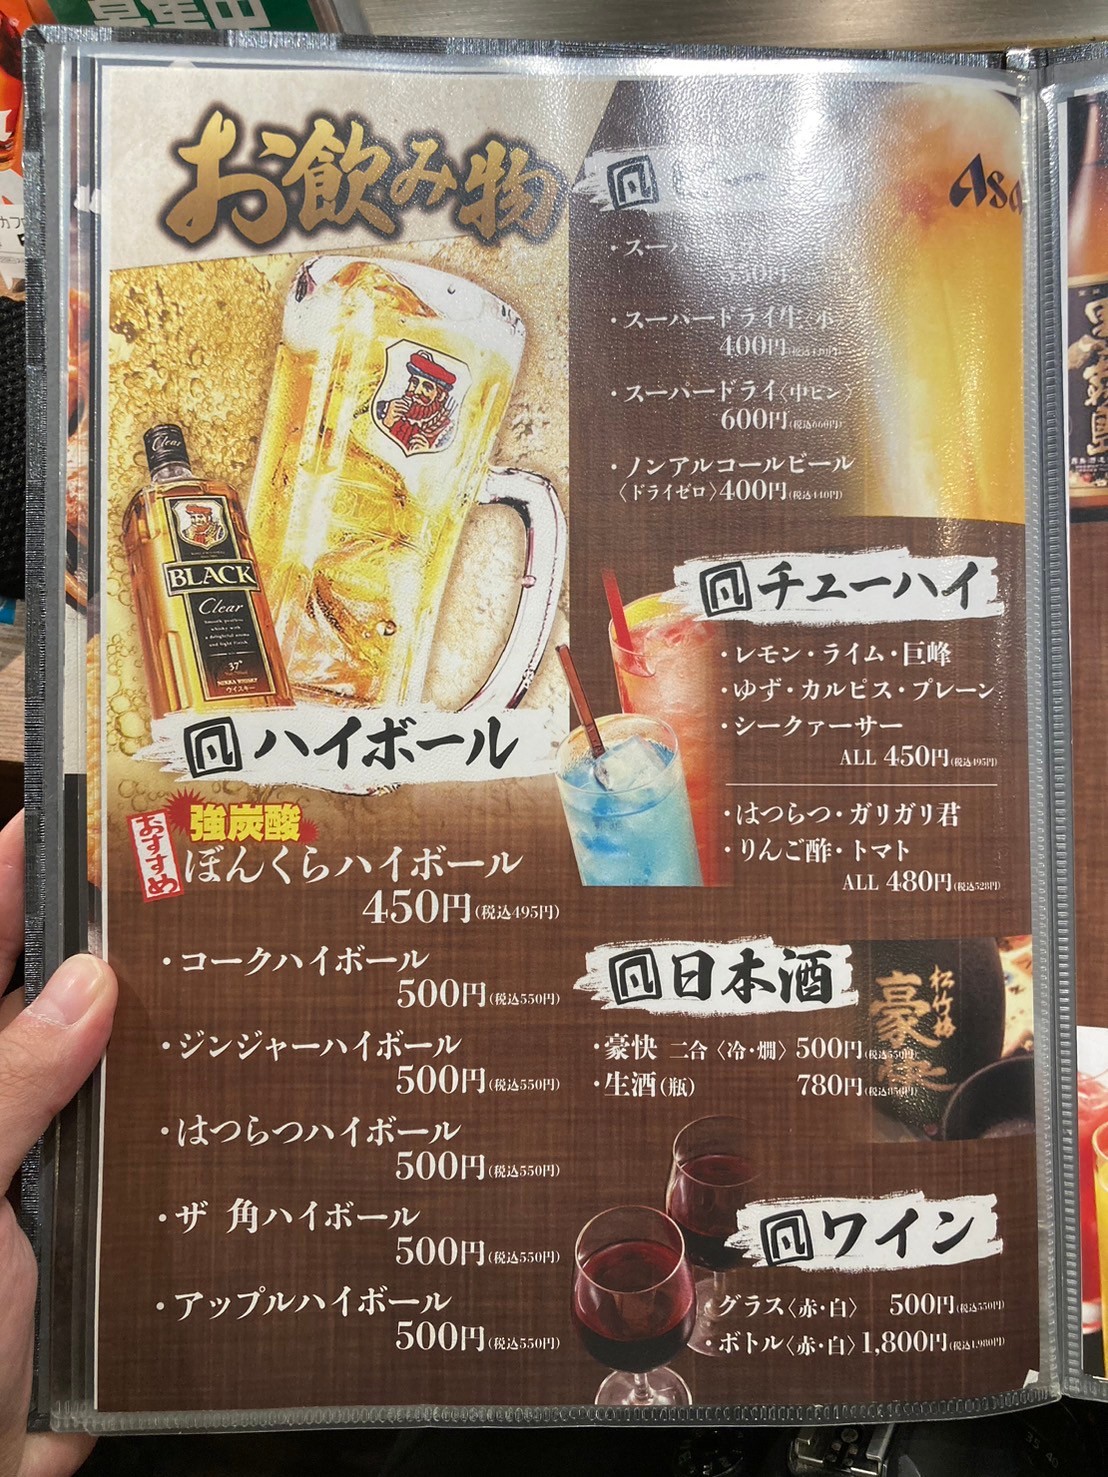 募集中
お飲み物
Asa
スーパー
50円
・スーパードライ生〈小〉
400円
・スーパードライ〈中ビン〉
600円(税込660円)
・ノンアルコールビール
〈ドライゼロ〉400円(税込440円)
Clear
BLACK
Clear
37°
NIKKA WHISKY
ウイスキー
凡 ハイボール
おすすめ
強炭酸
ぼんくらハイボール
450円(税込495円)
・コークハイボール
500円(税込550円)
・ジンジャーハイボール
500円(税込550円)
・はつらつハイボール
500円(税込550円)
・ザ 角ハイボール
500円(税込550円)
・アップルハイボール
500円(税込550円)
凡 チューハイ
・レモン・ライム・巨峰
・ゆず・カルピス・プレーン
・シークァーサー
ALL 450円(税込495円)
・はつらつ・ガリガリ君
・りんご酢・トマト
ALL 480円(税込528円)
凡 日本酒
松竹梅
豪快
・豪快 二合〈冷・燗〉500円(税込550円)
・生酒(瓶) 780円(税込858円)
凡 ワイン
グラス〈赤・白〉 500円(税込550円)
・ボトル〈赤・白〉1,800円(税込1,980円)